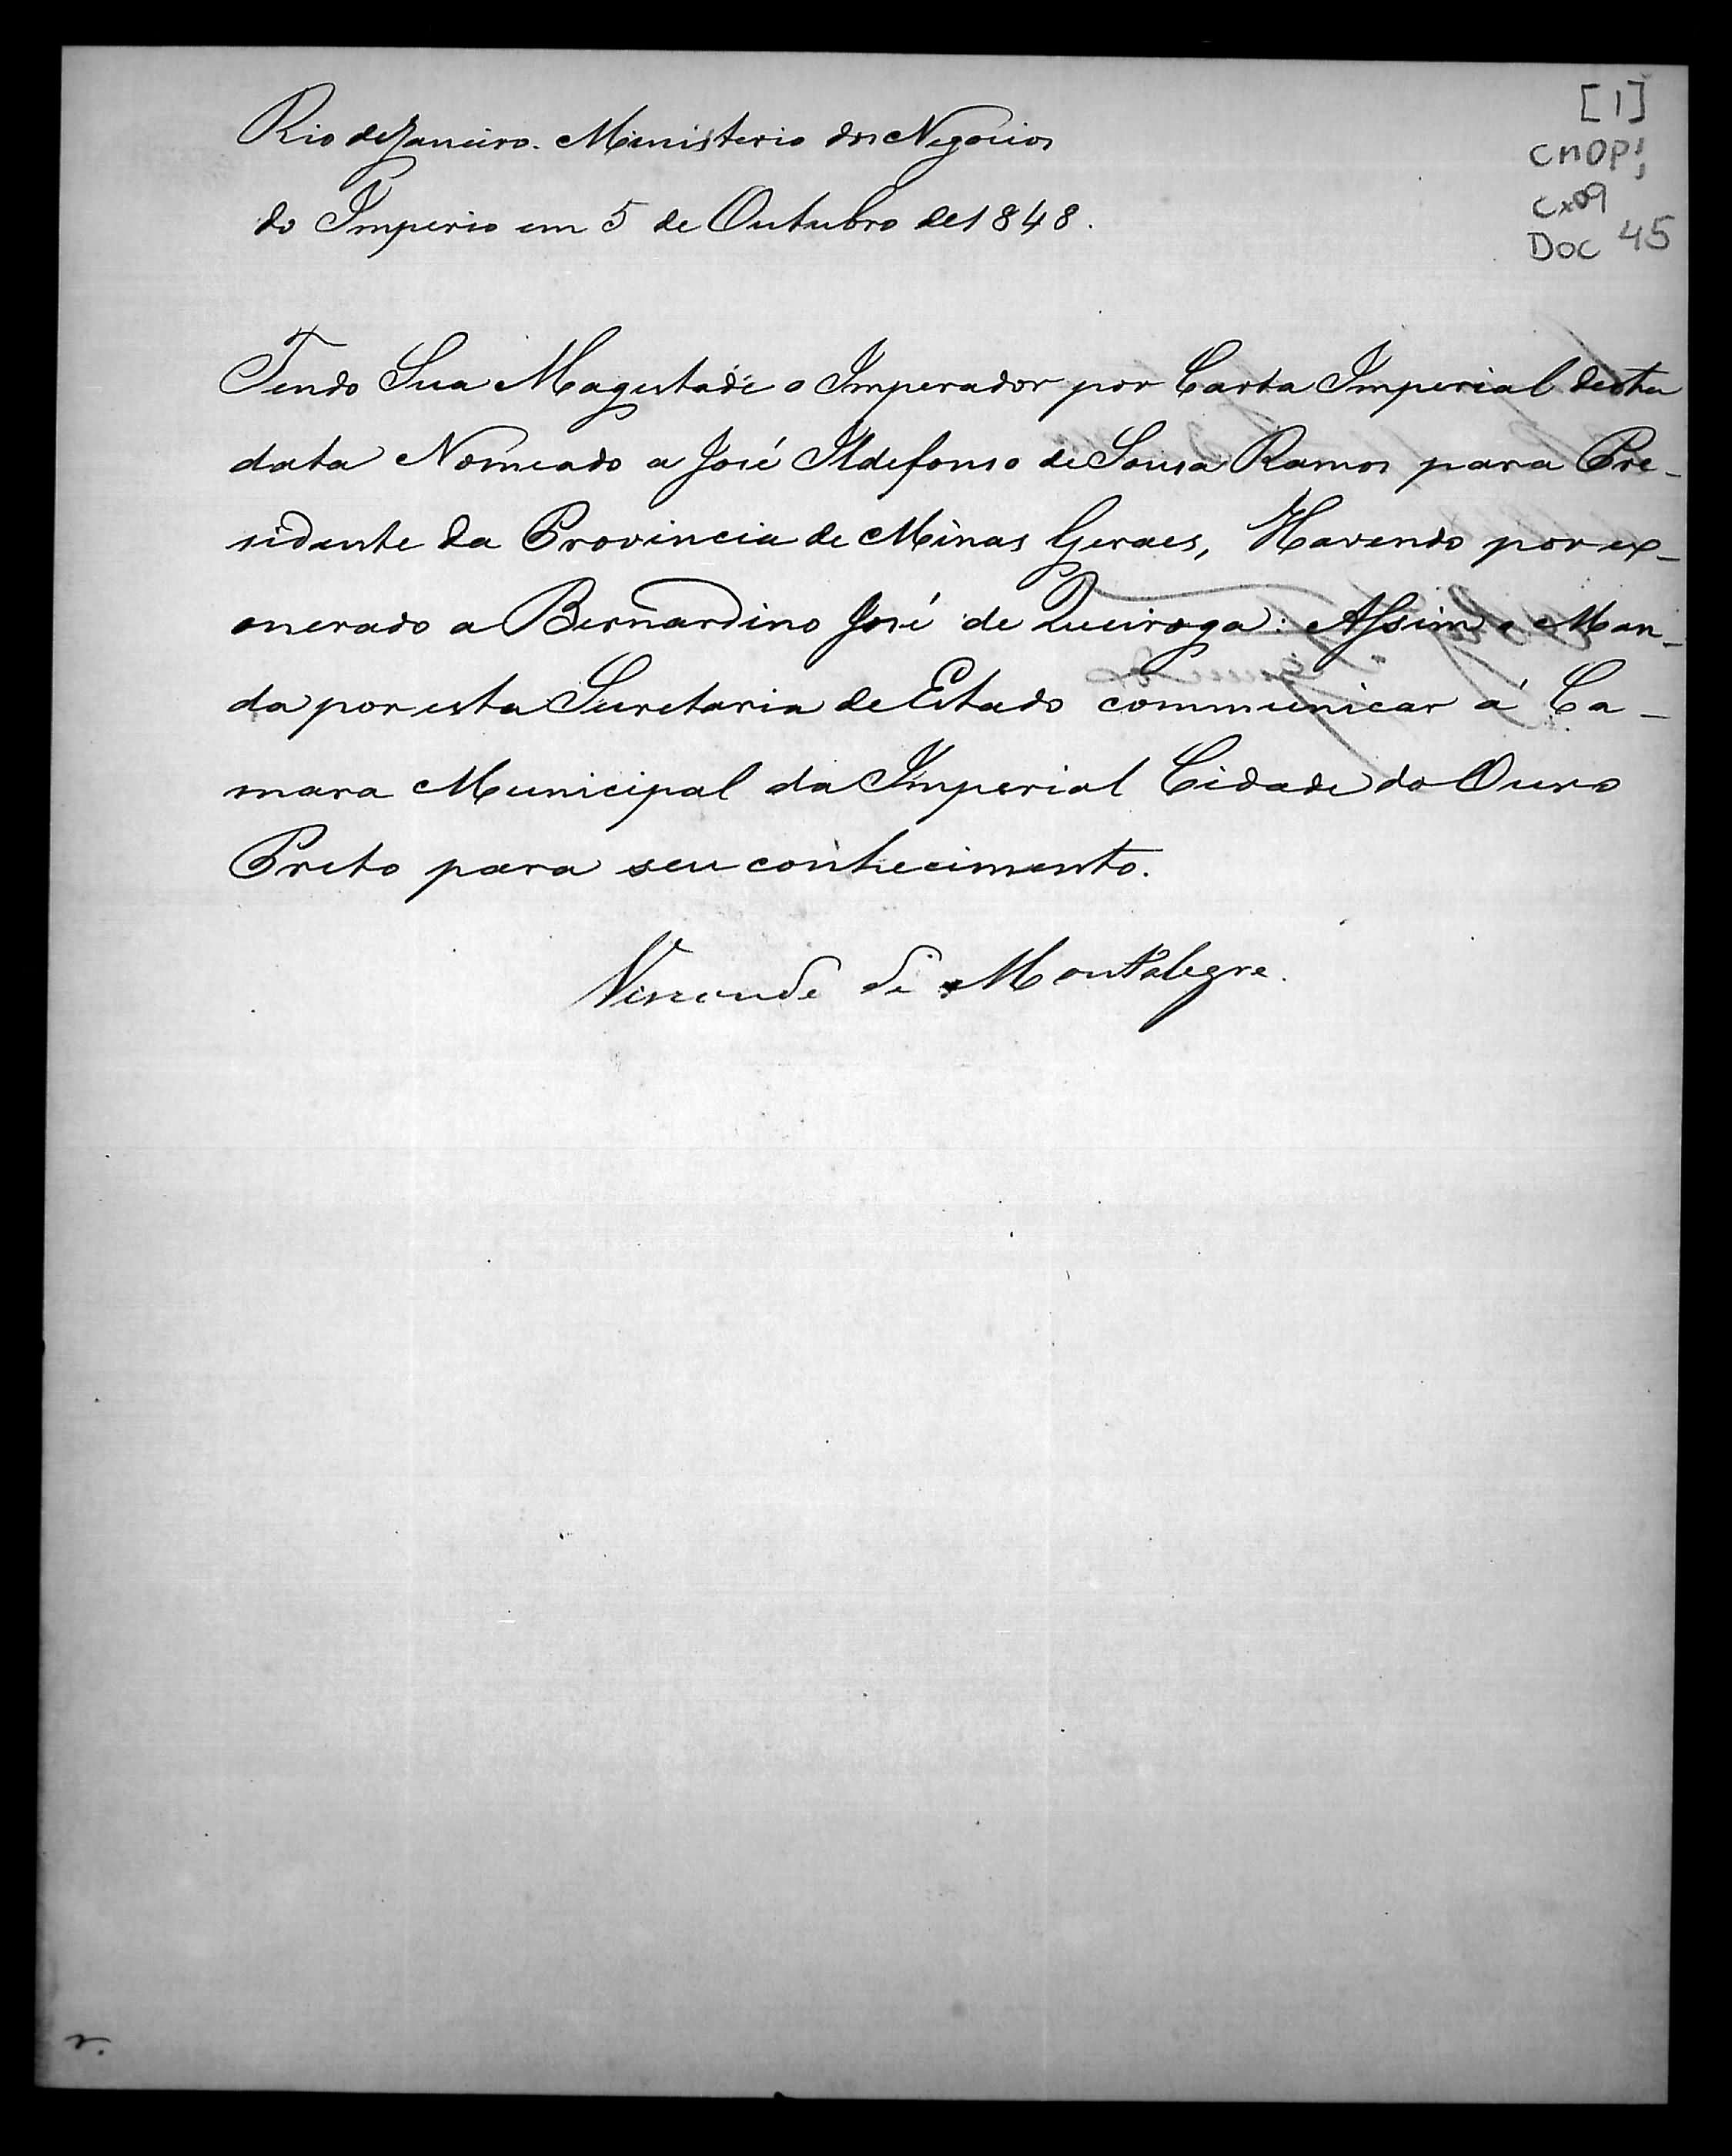 [1]
CMOP;
Cx09
Doc 45
Rio de Janeiro. Ministerio dos Negocios
do Imperio em 5 de Outubro de 1848.
Tendo Sua Magestade o Imperador por Carta Imperial desta
data Nomeado a José Ildefonso de Sousa Ramos para Pre-
sidente da Provincia de Minas Geraes, Havendo por ex-
onerado a Bernardino José de Queiroga: Assim o Man-
da por esta Secretaria de Estado communicar á Ca-
mara Municipal da Imperial Cidade do Ouro
Preto para seu conhecimento.
Visconde de Mont'alegre.